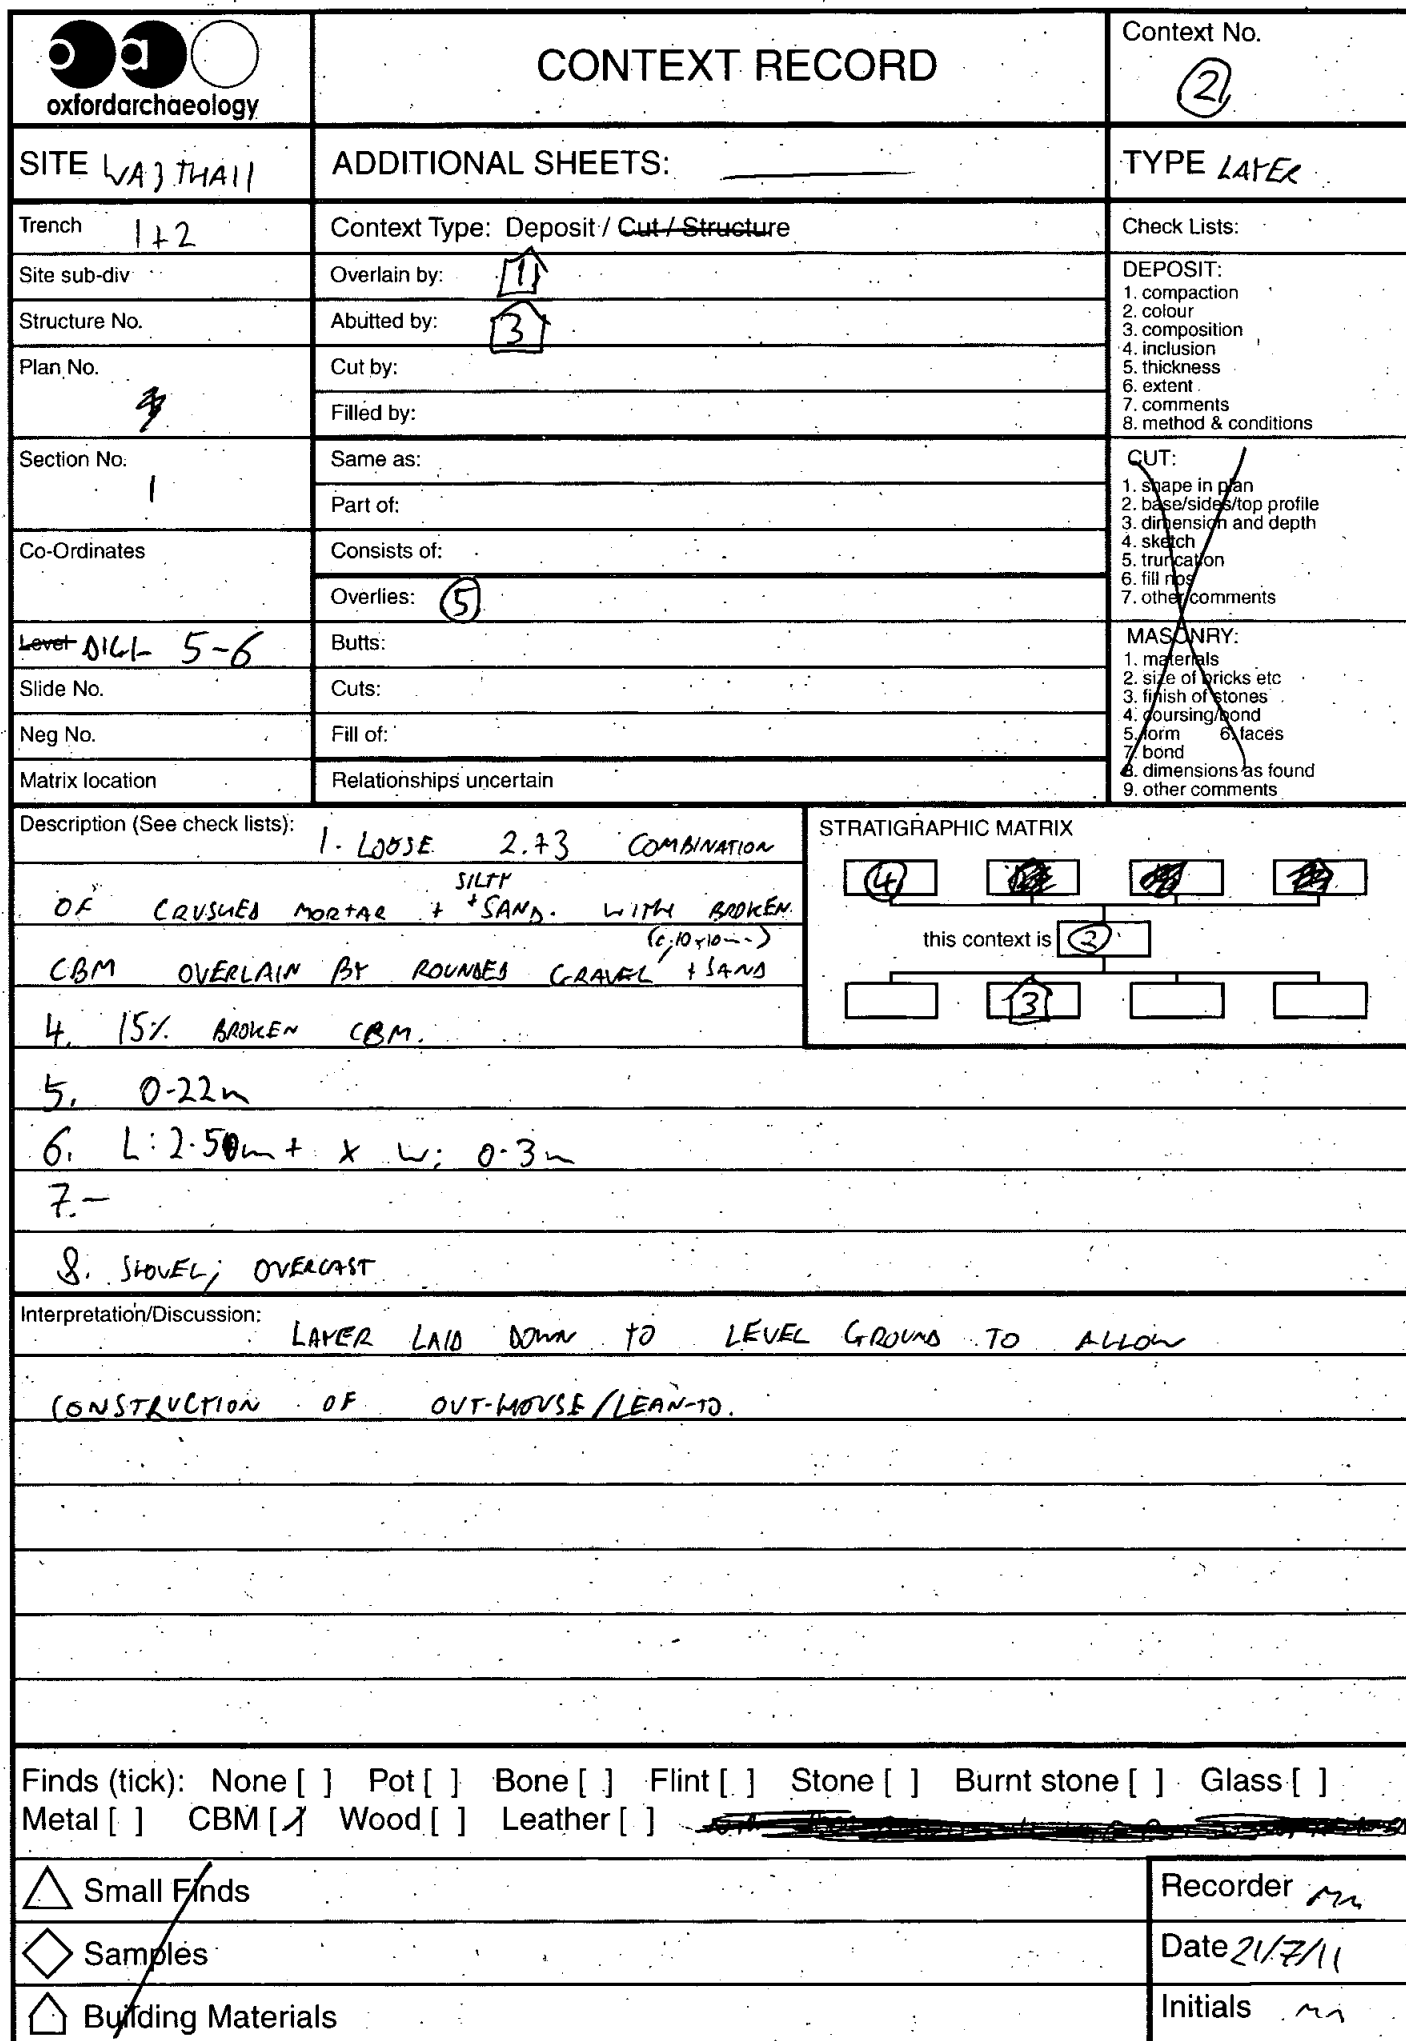 oao
oxfordarchaeology
CONTEXT RECORD
Context No.
2
SITE WA3THA11
ADDITIONAL SHEETS: ——
TYPE LAYER
Trench 1+2
Context Type: Deposit / Cut / Structure
Check Lists:
Site sub-div
Overlain by: 1
Structure No.
Abutted by: 3
Plan No.
Cut by:
Filled by:
Section No.
1
Same as:
Part of:
Co-Ordinates
Consists of:
Overlies: 5
Level DIGI- 5-6
Butts:
Slide No.
Cuts:
Neg No.
Fill of:
Matrix location
Relationships uncertain
DEPOSIT:
1. compaction
2. colour
3. composition
4. inclusion
5. thickness
6. extent
7. comments
8. method & conditions
CUT:
1. shape in plan
2. base/sides/top profile
3. dimension and depth
4. sketch
5. truncation
6. fill nos
7. other comments
MASONRY:
1. materials
2. size of bricks etc
3. finish of stones
4. coursing/bond
5. form 6. faces
7. bond
8. dimensions as found
9. other comments
Description (See check lists): 1. LOOSE 2.+3 COMBINATION
OF CRUSHED MORTAR + SILTY SAND. WITH BROKEN
CBM OVERLAIN BY ROUNDED GRAVEL + SAND
4. 15% BROKEN CBM.
5. 0-22m
6. L: 2.50m+ x W: 0-3m
7. -
8. SHOVEL; OVERCAST
STRATIGRAPHIC MATRIX
4
this context is 2
3
Interpretation/Discussion: LAYER LAID DOWN TO LEVEL GROUND TO ALLOW
CONSTRUCTION OF OUT-HOUSE/LEAN-TO.
Finds (tick): None [ ] Pot [ ] Bone [ ] Flint [ ] Stone [ ] Burnt stone [ ] Glass [ ]
Metal [ ] CBM [/] Wood [ ] Leather [ ]
Small Finds
Samples
Building Materials
Recorder
Date 21/7/11
Initials